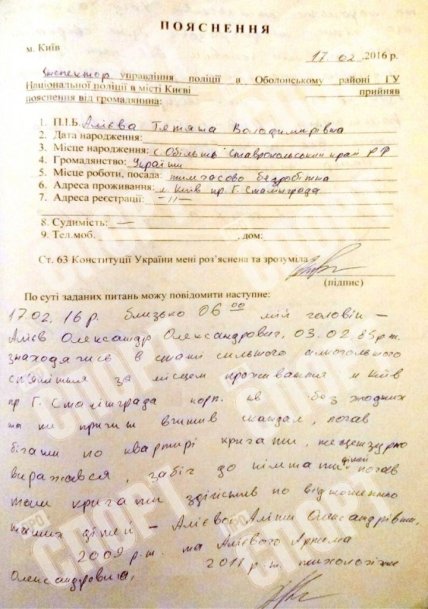 ПОЯСНЕННЯ
м. Київ
17 02 2016 р.
Інспектор управління поліції в Оболонському районі ГУ
Національної поліції в місті Києві прийняв
пояснення від громадянина:
1. П.І.Б. Алієва Тетяна Володимирівна
2. Дата народження:
3. Місце народження: Ставропольський край РФ
4. Громадянство: України
5. Місце роботи, посада: тимчасово безробітна
6. Адреса проживання: м Київ пр Г. Сталінграда
7. Адреса реєстрації: –//–
8. Судимість: –
9. Тел.моб. , дом:
Ст. 63 Конституції України мені роз'яснена та зрозуміла
(підпис)
По суті заданих питань можу повідомити наступне:
17.02.16 р. близько 06 00 мій
Алієв Олександр Олександрович, 03.02.85р.н.
знаходячись в стані сильного алкогольного
сп'яніння за місцем проживання м Київ
пр Г. Сталінграда корп. кв без жодних
на те причин вчинив скандал, почав
бігати по квартирі кричати, нецензурно
виражався, забіг до кімнати дітей почав
кричати по відношенню
наших дітей – Алієвої Аліни Олександрівни,
2009 р.н. та Алієвого Артема
Олександровича, 2011 р.н.
ПРО СПОРТ